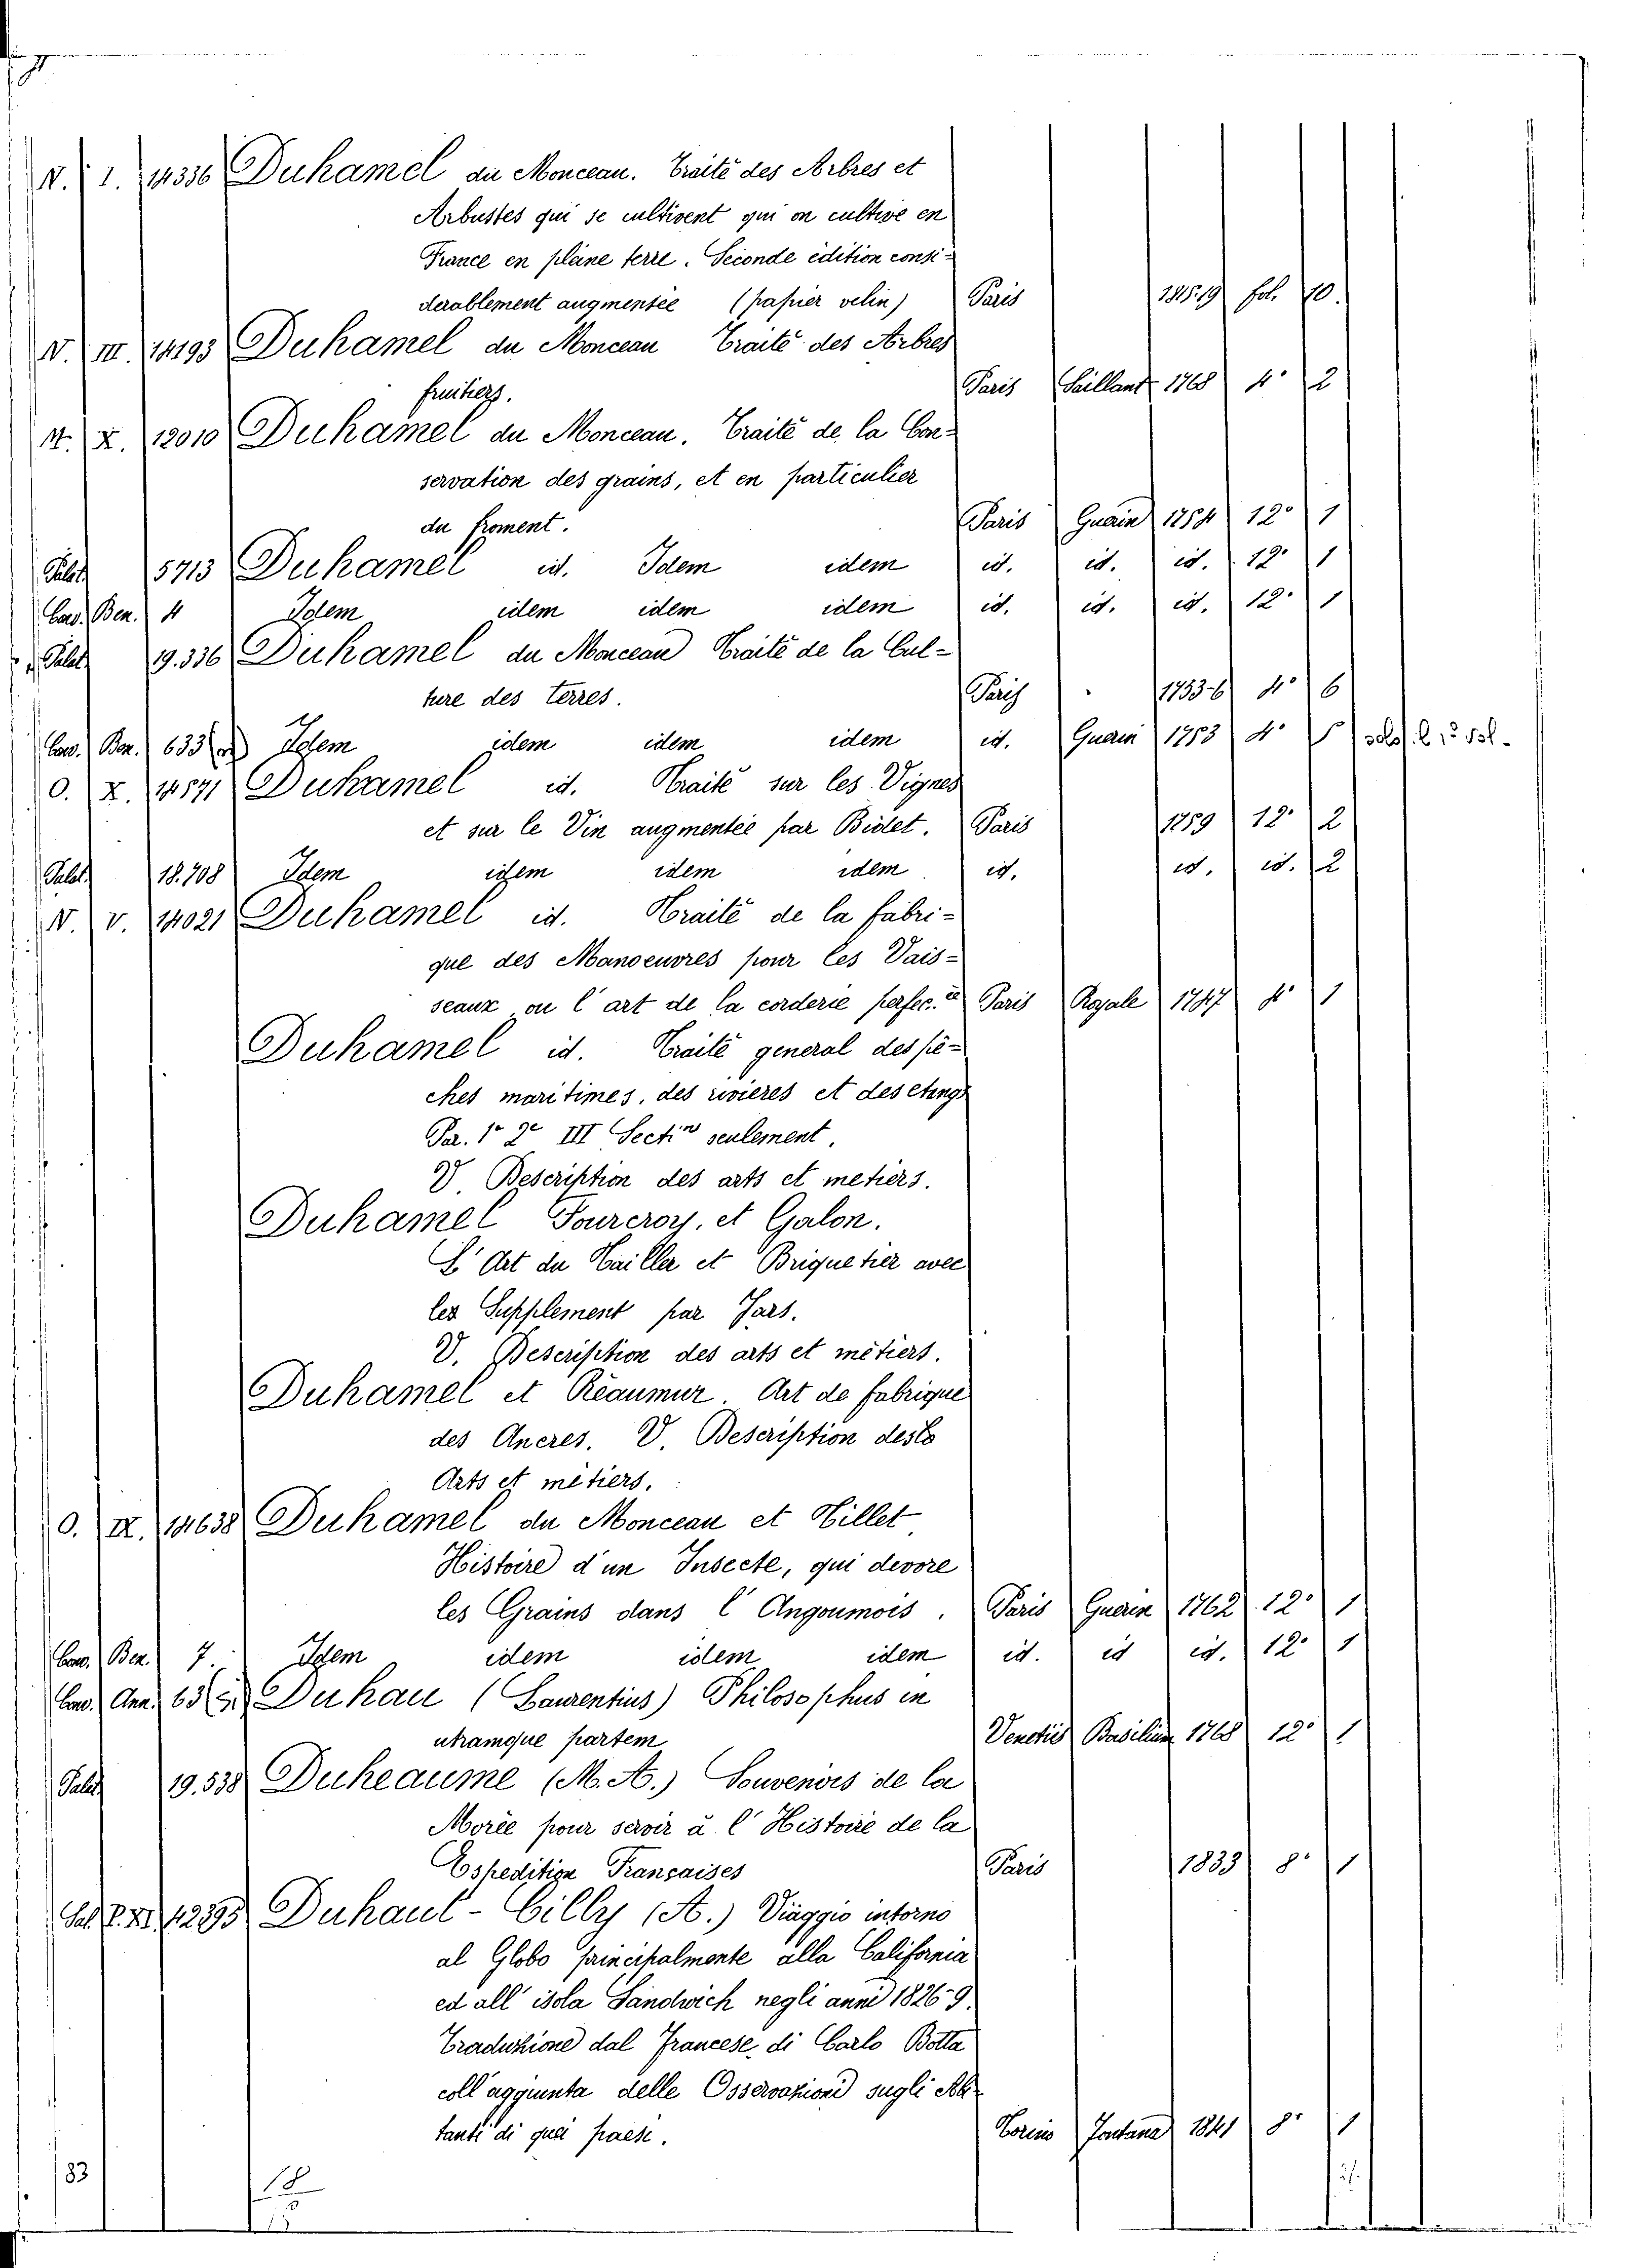 N. I. 14336 Duhamel du Monceau. Traité des Arbres et
Arbustes qui se cultivent qui on cultive en
France en pleine terre. Seconde édition consi-
derablement augmentée (papier velin) Paris 1815.19 fol. 10.
N. III. 14193 Duhamel du Monceau Traité des Arbres
fruitiers. Paris Saillant 1768 4° 2
N. X. 12010 Duhamel du Monceau. Traité de la Con-
servation des grains, et en particulier
du froment. Paris Guerin 1754 12° 1
Palat. 5713 Duhamel id. Idem idem id. id. id. 12° 1
Cas. Ben. 4 Idem idem idem idem id. id. id. 12° 1
Palat. 19.336 Duhamel du Monceau Traité de la Cul-
ture des terres. Paris 1753-6 4° 6
Cas. Ben. 633 Idem idem idem idem id. Guerin 1753 4° solo il 1° vol.
O. X. 14571 Duhamel id. Traité sur les Vignes
et sur le Vin augmentée par Bidet. Paris 1759 12° 2
Palat. 18.708 Idem idem idem idem id. id. id. 2
N. V. 14021 Duhamel id. Traité de la fabri-
que des Manoeuvres pour les Vais-
seaux, ou l'art de la corderie perfec.ée Paris Royale 1747 4° 1
Duhamel id. Traité general des pê-
ches maritimes, des rivieres et des etangs
Par. 1° 2° III Sectin seulement.
V. Description des arts et metiers.
Duhamel Fourcroy, et Galon.
L'Art du Tuiller et Briquetier avec
les Supplement par Jars.
V. Description des arts et métiers.
Duhamel et Réaumur. Art de fabrique
des Ancres. V. Description des
Arts et métiers.
O. IX. 14638 Duhamel du Monceau et Tillet
Histoire d'un Insecte, qui devore
les Grains dans l'Angoumois. Paris Guerin 1762 12° 1
Cas. Ben. 7. Idem idem idem idem id. id id. 12° 1
Cas. Ann. 63 Duhau (Laurentius) Philosophus in
utramque partem Venetiis Basilium 1768 12° 1
Palat. 19.538 Duheaume (M. A.) Souvenirs de la
Morée pour servir à l'Histoire de la
Espedition Françaises Paris 1833 8° 1
1295 Duhaut-Cilly (A.) Viaggio intorno
al Globo principalmente alla California
ed all'isola Sandwich negli anni 1826-9.
Traduzione dal Francese, di Carlo Botta
coll'aggiunta delle Osservazioni sugli Abi-
tanti di quei paesi. Torino Fontana 1841 8° 1
83
18